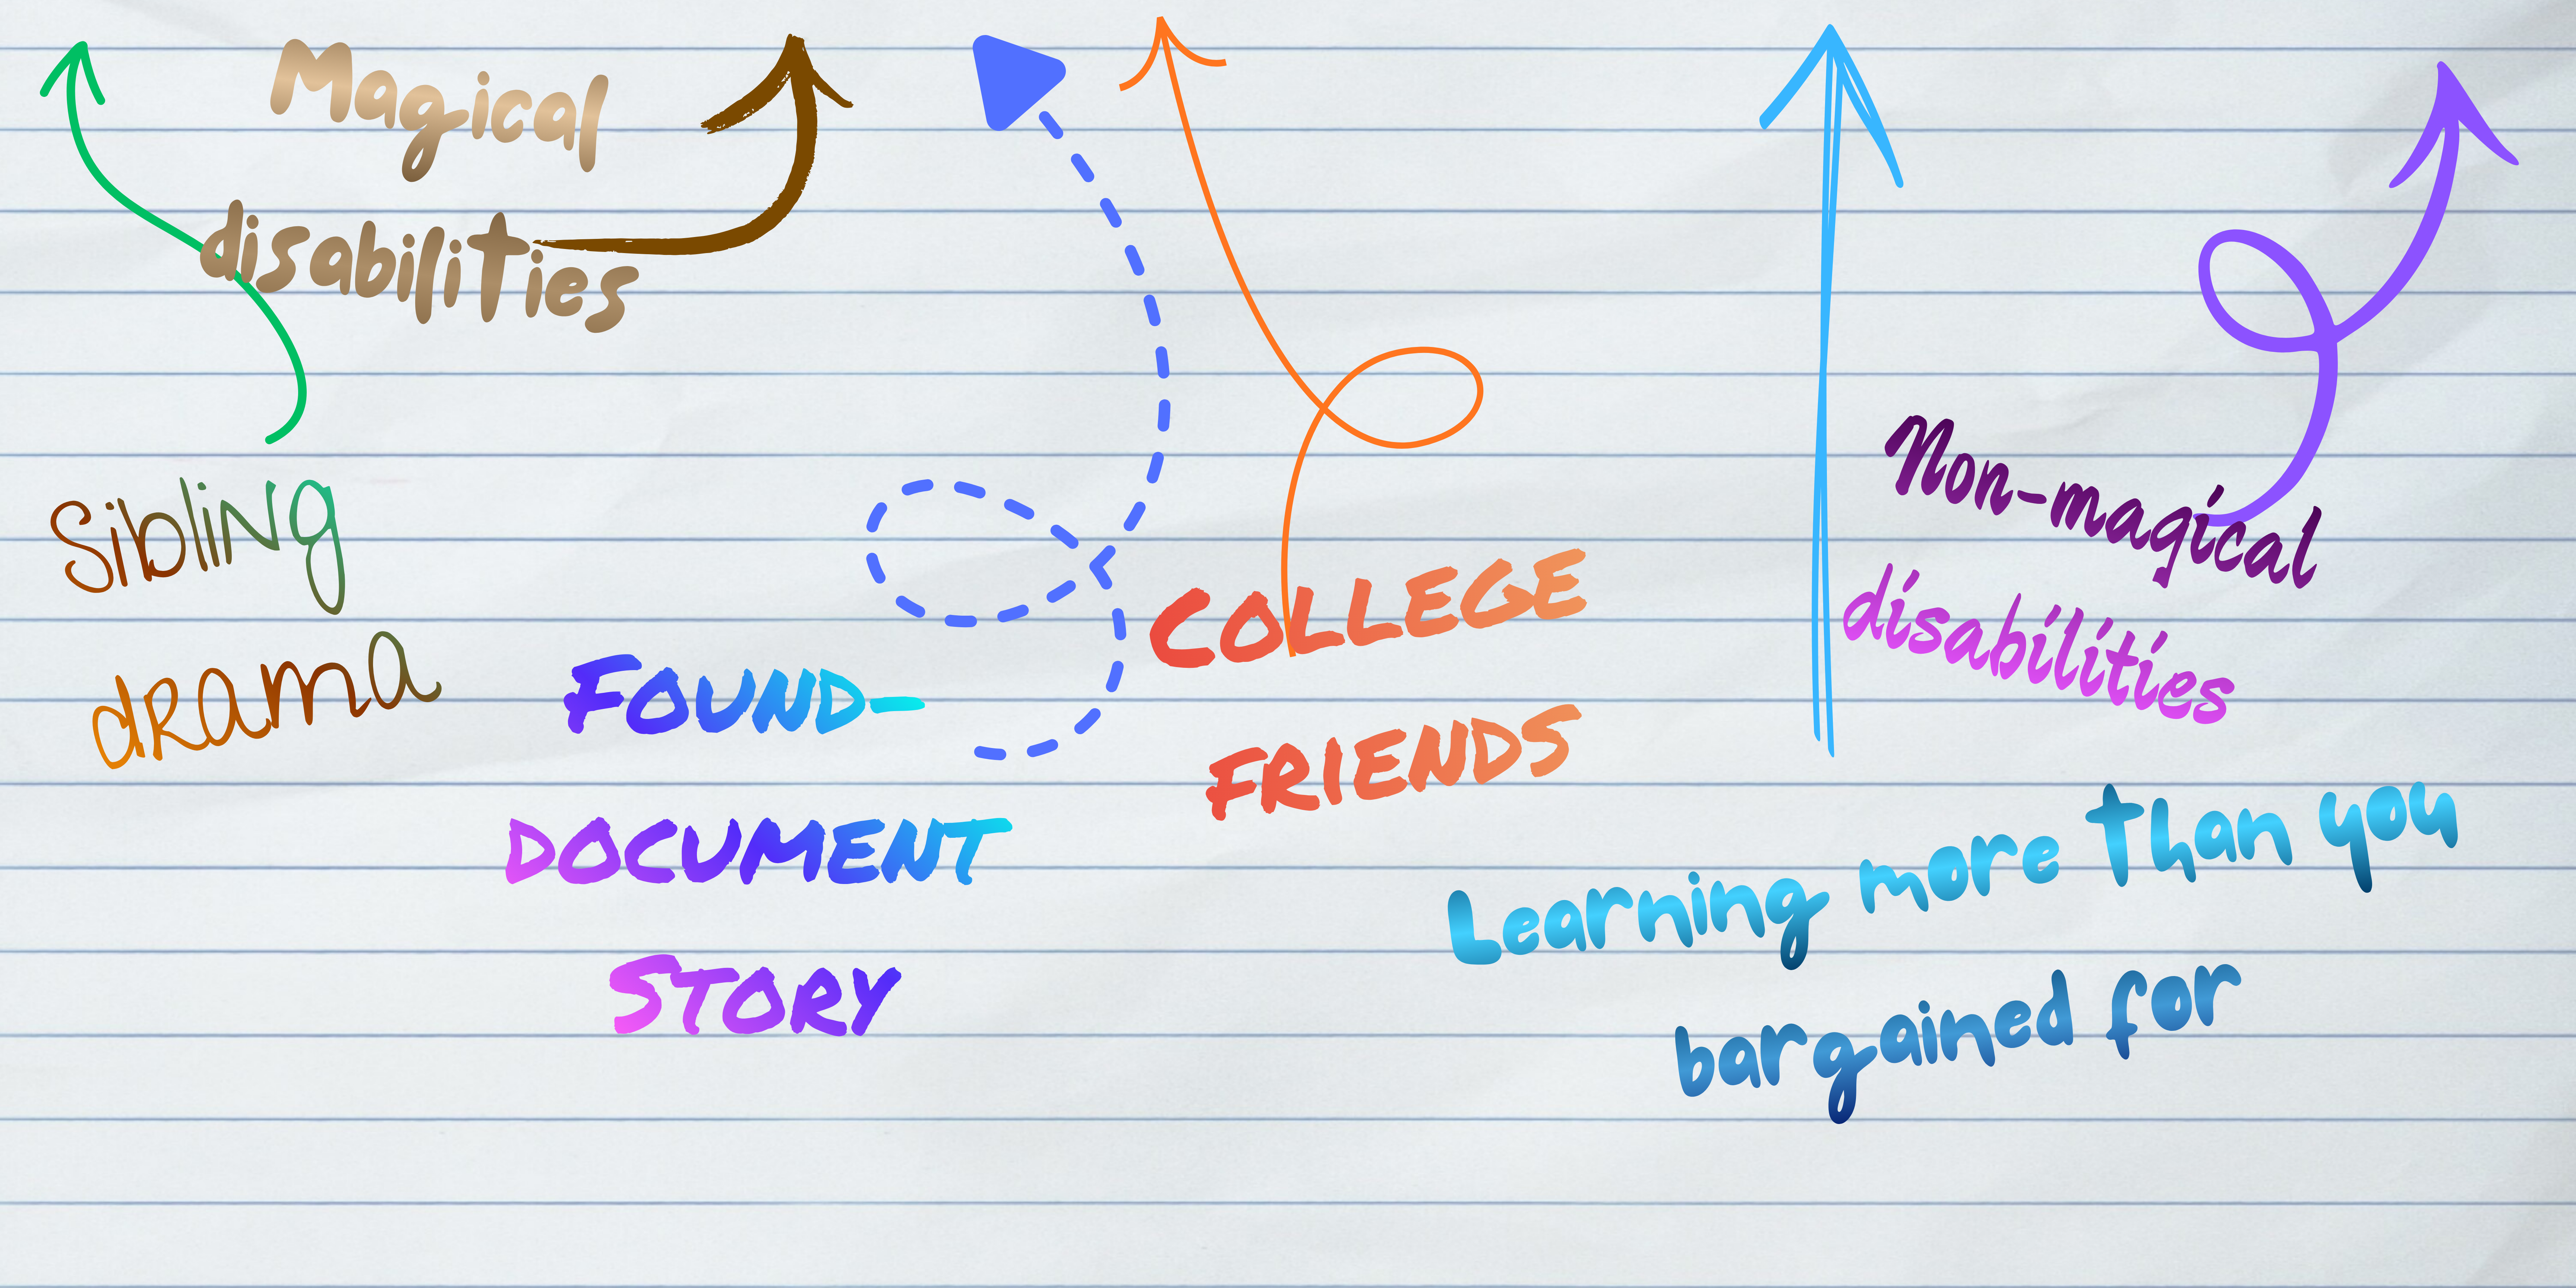 Magical
disabilities
Sibling
drama
FOUND-
DOCUMENT
STORY
COLLEGE
FRIENDS
Non-magical
disabilities
Learning more than you
bargained for